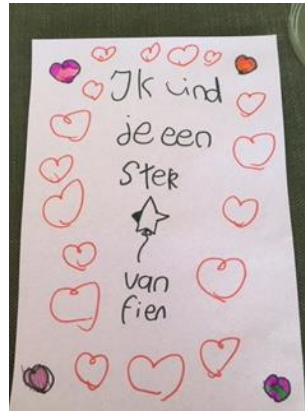 Ik vind
je een
Ster
van
fien